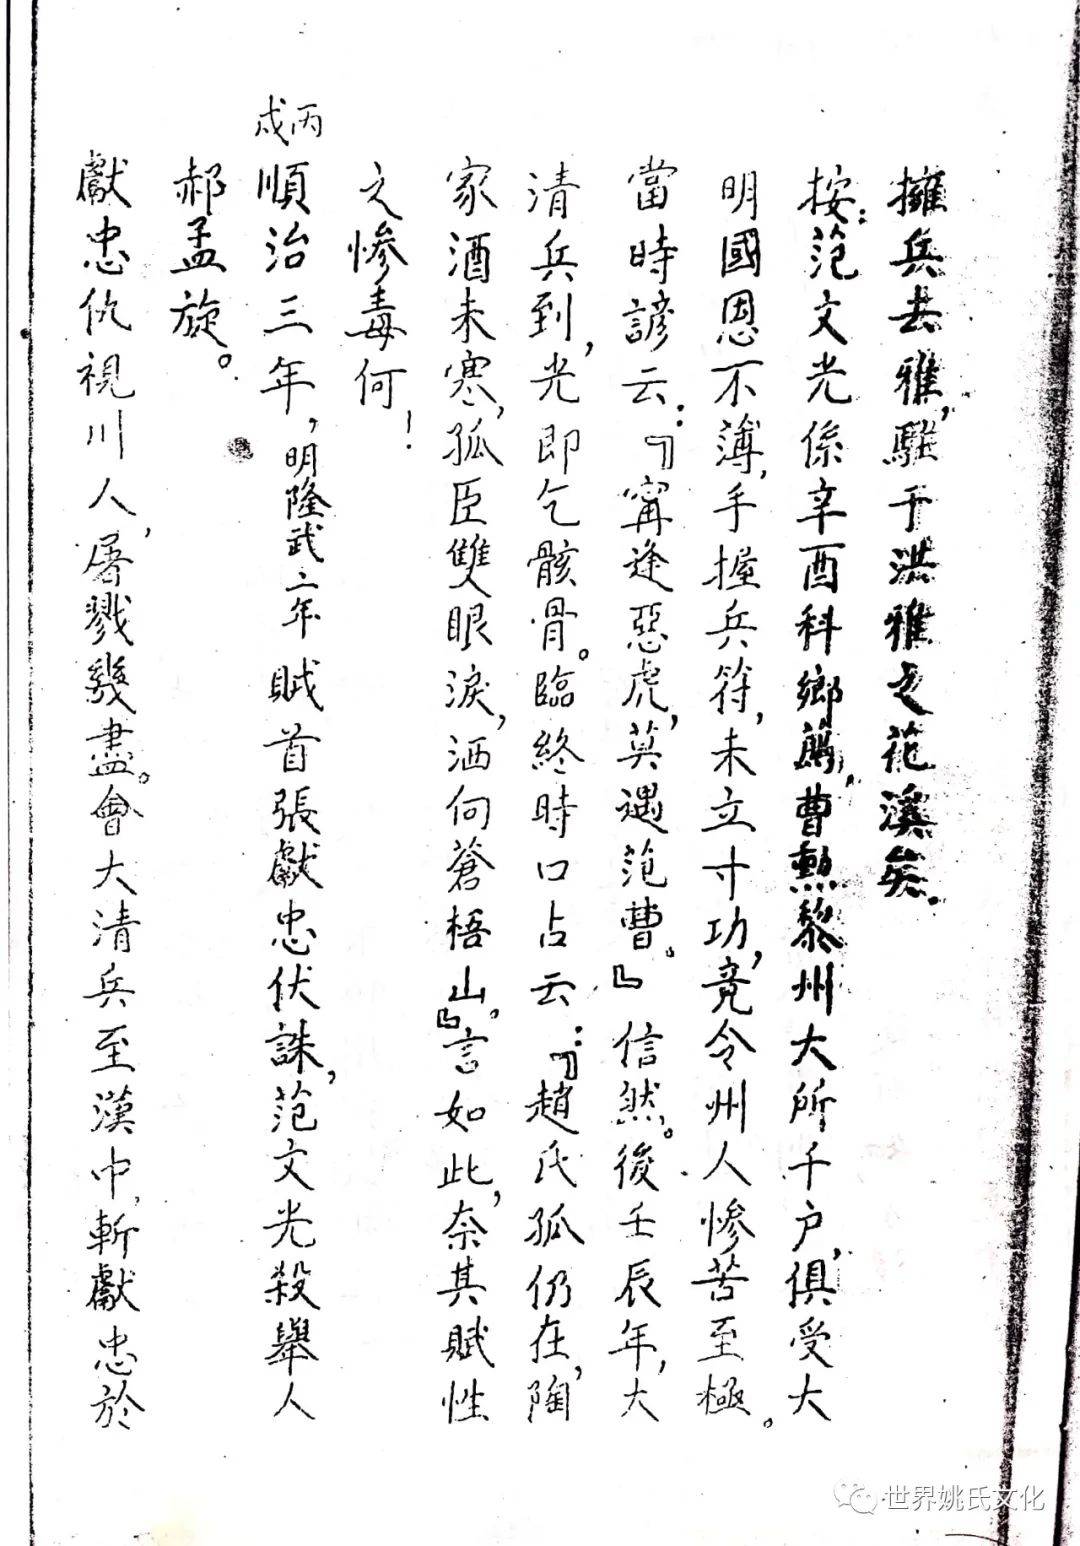 擁兵去雅，駐于洪雅之花溪矣。
按：范文光係辛酉科鄉薦，曹勲黎州大所千户，俱受大
明國恩不薄，手握兵符，未立寸功，竟令州人慘苦至極。
當時諺云：『寧逢惡虎，莫遇范曹。』信然。後壬辰年，大
清兵到，光即乞骸骨。臨終時口占云：『趙氏孤仍在，陶
家酒未寒，孤臣雙眼淚，洒向蒼梧山。』言如此，奈其賦性
之慘毒何！
丙戌
順治三年，明隆武二年賊首張獻忠伏誅，范文光殺舉人
郝孟旋。
獻忠仇視川人，屠戮幾盡。會大清兵至漢中，斬獻忠於
世界姚氏文化